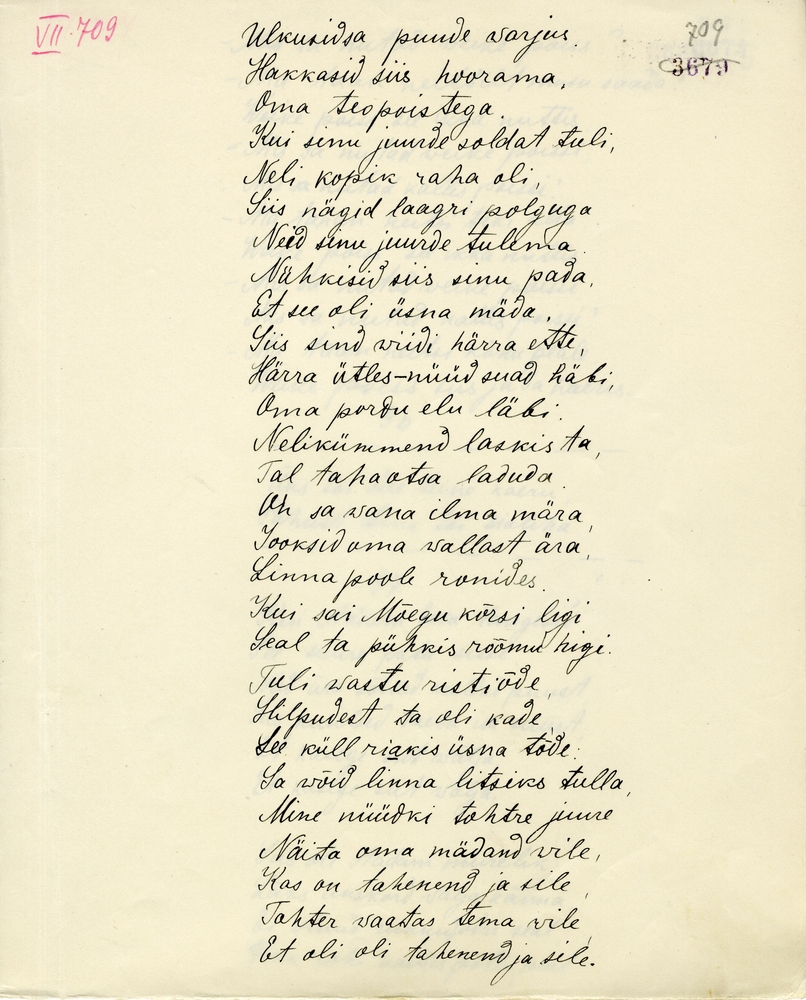 VII.709
709
3679
Ulkusidsa puude warjus.
Hakkasid siis hoorama,
Oma teopoistega.
Kui sinu juurde soldat tuli,
Neli kopik raha oli,
Siis nägid laagri polguga
Neid sinu juurde tulema.
Nühkisid siis sinu pada,
Et see oli üsna mäda,
Siis sind wiidi härra ette,
Härra ütles–nüüd suad häbi,
Oma pordu elu läbi.
Nelikümmend laskis ta,
Tal tahaotsa laduda.
Oh sa wana ilma mära,
Jooksid oma wallast ära,
Linna poole ronides.
Kui sai Mõegu kõrsi ligi
Seal ta pühkis rõõmu higi.
Tuli wastu ristiõde,
Hilpudest ta oli kade,
See küll riakis üsna tõde:
Sa wõid linna litsiks tulla,
Mine nüüdki tohtre juure
Näita oma mädand wile,
Kas on tahenend ja sile,
Tohter waatas tema wile,
Et oli oli tahenend ja sile.